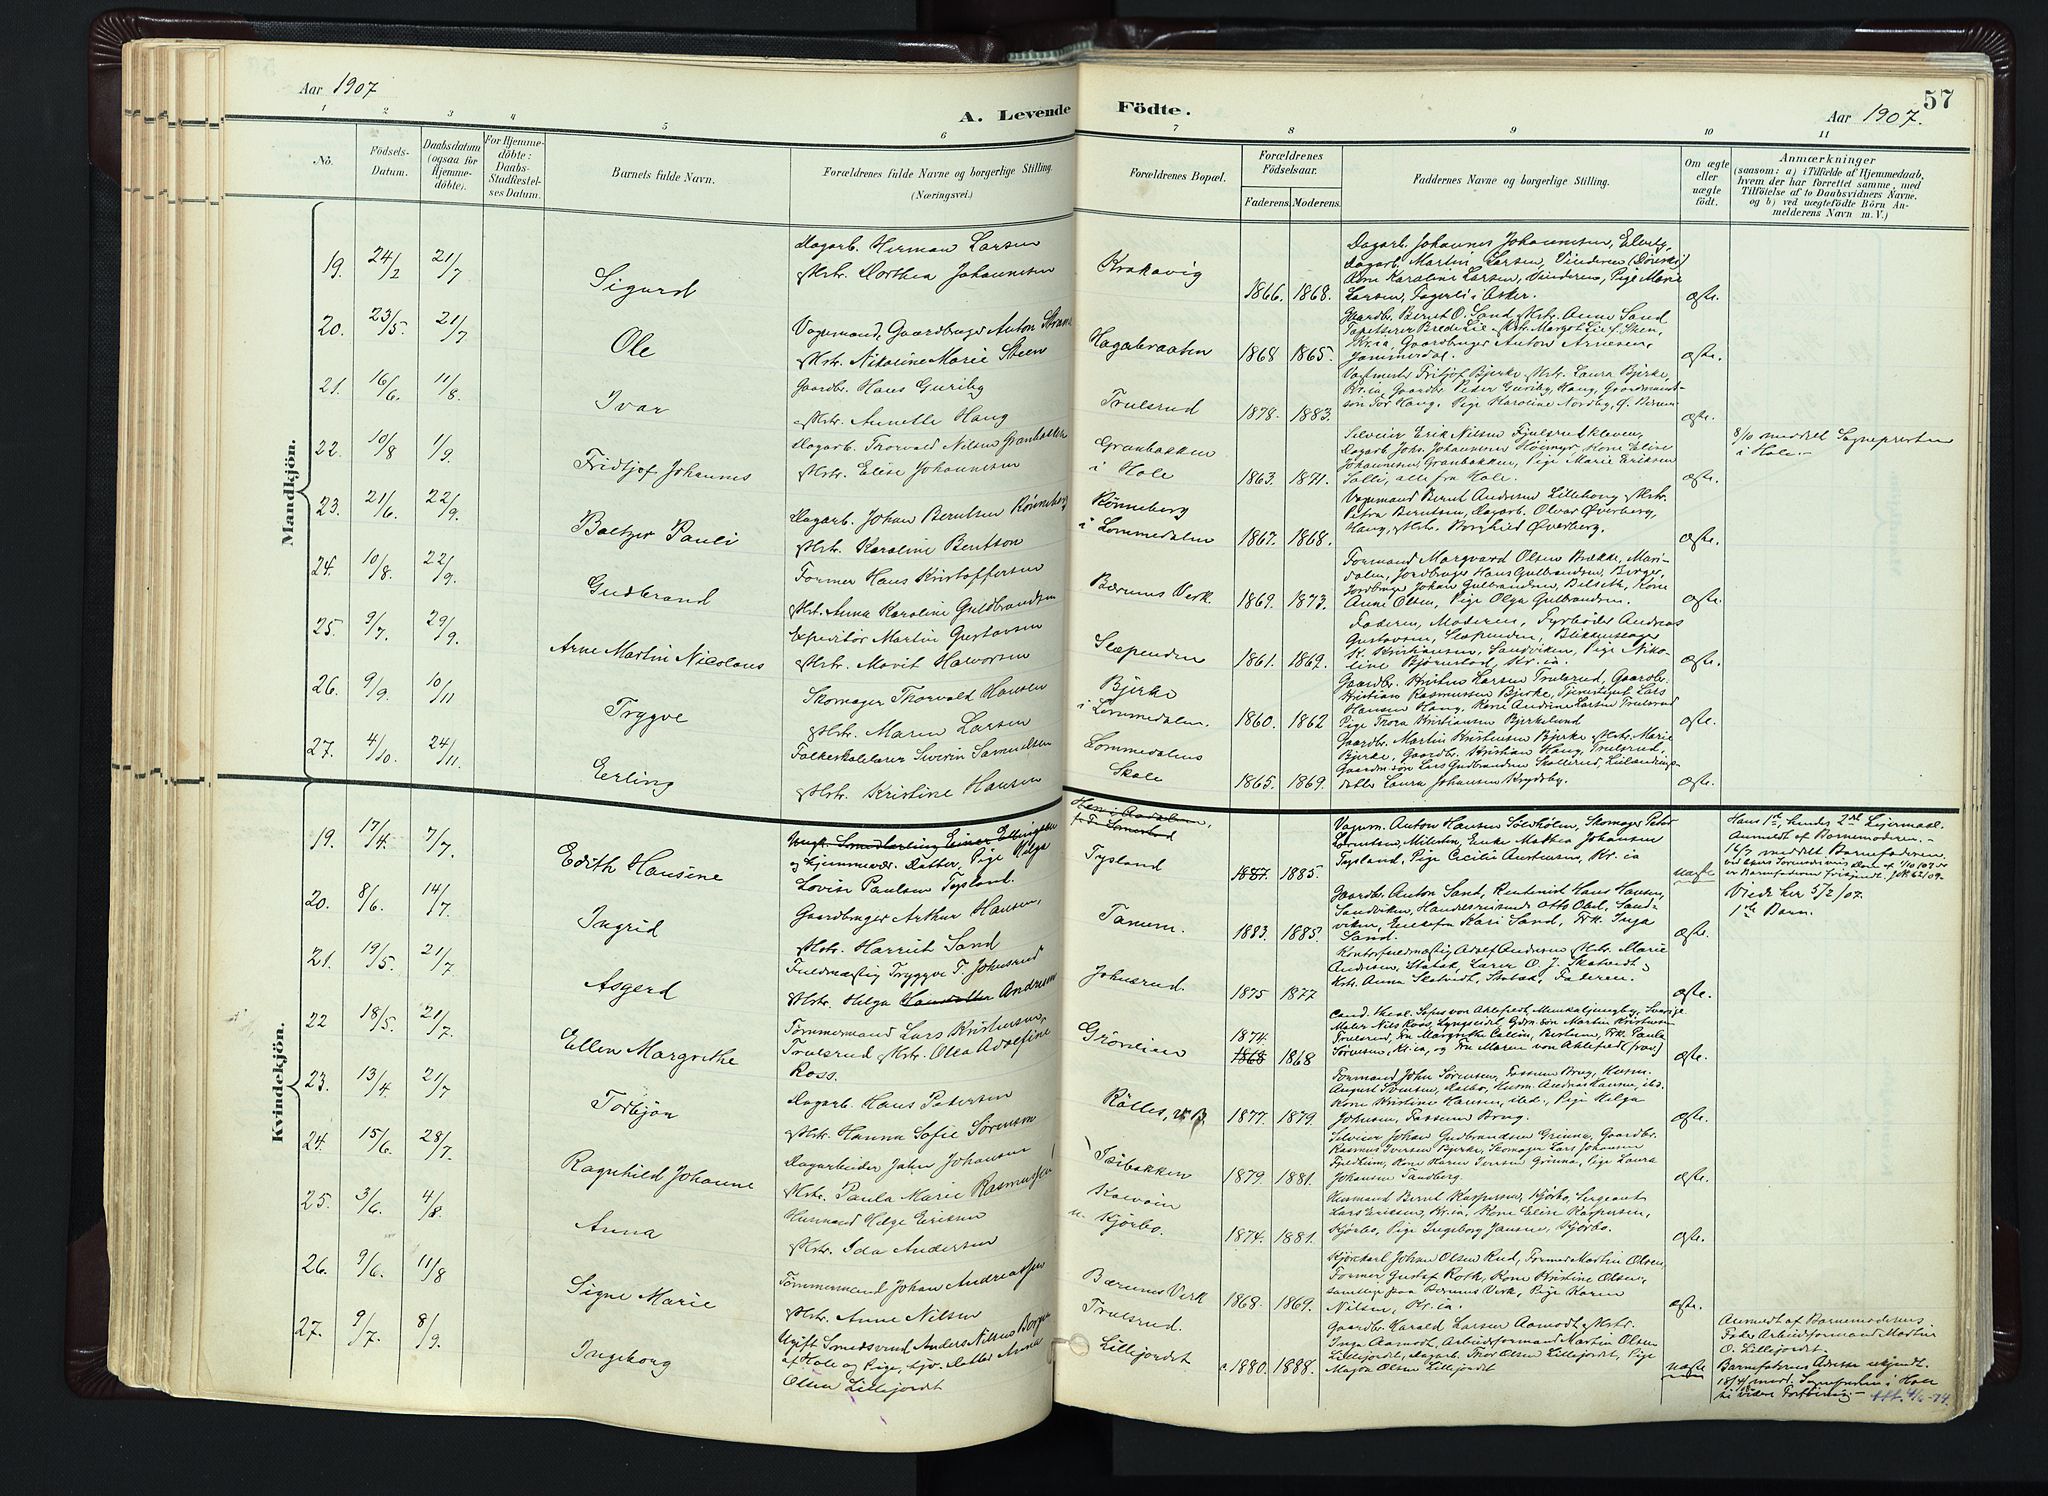 Aar 1907
A. Levende Födte.
57
Aar 1907.
1 2 3 4 5 6 7 8 9 10 11
No.
Födsels-
Datum.
Daabsdatum
(ogsaa for
Hjemme-
döbte).
For Hjemme-
döbte:
Daabs-
Stadfæstel-
ses Datum.
Barnets fulde Navn.
Forældrenes fulde Navne og borgerlige Stilling.
(Næringsvei.)
Forældrenes Bopæl.
Forældrenes
Födselsaar.
Faderens. Moderens.
Faddernes Navne og borgerlige Stilling.
Om ægte
eller
uægte
födt.
Anmærkninger
(saasom: a) i Tilfælde af Hjemmedaab,
hvem der har forrettet samme, med
Tilföielse af to Daabsvidners Navne,
og b) ved uægtefödte Börn An-
melderens Navn m. V.)
Mandkjön.
19. 24/2 21/7 Sigurd
Dagarb. Herman Larsen
Hstr. Dorthea Johannesen
Krakavig
1866. 1868.
Dagarb. Johannes Johannesen,
Dagarb. Martin Larsen, Vinderen
Kone Karoline Larsen, Vinderen, Pige Marie
Larsen, i Asker.
ægte.
20. 23/5. 21/7 Ole
Gaardbruger Anton
Hstr. Nikoline Marie Steen
Hagabraaten
1868 1865.
Gaardbr. Bernt O. Sand, Hstr. Anne Sand
Tapetserer Brede Lie, Hstr. Margot Lie f. Steen,
Kr.ia, Gaardbruger Anton Arnesen,
Jammerdal.
ægte.
21. 16/6. 11/8. Ivar
Gaardbr. Hans Guriby
Hstr. Annette Haug
Trulsrud
1878. 1883.
Vagtmester Fritjof Bjerke, Hstr. Laura Bjerke,
Kr.ia, Gaardbr. Peder Guriby, Haug, Gaardmand-
søn Tor Haug, Pige Karoline Nordby,
ægte.
22. 10/8 1/9. Fridtjof Johannes
Dagarb. Thorvald Nilsen Granbakken
Hstr. Elise Johannesen
Granbakken
i Hole
1863. 1871.
Selveier Erik Nilsen Fjulsrudkleven,
Dagarb. Johs. Johannesen Høgmyr, Kone Elise
Johannesen, Granbakken, Pige Marie Eriksen
Solli, alle fra Hole.
ægte.
8/10 meddelt Sognepresten
i Hole.-
23. 21/6. 22/9. Baltzer Pauli
Dagarb. Johan Berntsen Rønneberg
Hstr. Karoline Bentson
Rønneberg
i Lommedalen
1867. 1868.
Vognmand Bernt Andersen Lillehong, Hstr.
Petra Berntsen, Dagarb. Olvar Øverberg,
Haug, Hstr. Borghild Øverberg.
ægte.
24. 10/8. 22/9. Gudbrand
Former Hans Kristoffersen
Hstr. Anna Karoline Guldbrandsen
Bærums Verk.
1869. 1873.
Formand Margvard Olsen Brække, Mari-
dalen, Jordbruger Hans Gulbrandsen, Berger,
Jordbruger Johan Gulbrandsen Bilseth, Kone
Anne Olsen, Pige Olga Gulbrandsen.
ægte.
25. 9/7. 29/9. Arne Martin Nicolaus
Expeditör Martin Gustavsen
Hstr. Marit Halvorsen
Slæpenden
1861. 1869.
Faderen, Moderen, Fyrbøder Andreas
Gustavsen, Slæpenden, Blikkenslager
K. Kristiansen, Sandviken, Pige Niko-
line Bjørnstad, Kr.ia.
ægte.
26. 9/9. 10/11 Trygve
Skomager Thorvald Hansen
Hstr. Maren Larsen
Bjerke
i Lommedalen.
1860. 1862
Gaardbr. Kristen Larsen Trulsrud, Gaardbr.
Kristian Rasmussen Bjerke, Tjenestegut Lars
Hansen Haug, Kone Andrine Larsen Trulsrud
Pige Thora Kristiansen Bjerkelund
ægte.
27. 4/10. 24/11. Erling
Folkeskolelærer Siverin Samuelsen
Hstr. Kristine Hansen
Lommedalens
Skole
1865. 1869.
Gaardbr. Martin Kristensen Bjerke, Hstr. Marie
Bjerke, Gaardbr. Kristian Haug, Trulsrud,
Gaardm.søn Lars Gudbrandsen Skollerud, Leilændings-
datter Laura Johansen Krydsby.
ægte.
Kvindekjön.
19. 17/4. 7/7. Edith Hansine
Ungk. Smedlærling Einar Ellingsen
og hjemmevær. Datter, Pige Helga
Lovise Paulsen Tysland.
Tysland
1887. 1885.
Vognm. Anton Hansen Solehölm, Skomager Peter
Lorentsen, Milesten, Enke Mathea Johansen
Tysland, Pige Cecilie Amtensen, Kr.ia
uægte
Hans 1ste, hendes 2det Leiermaal.
Anmeldt af Barnemoderen.-
16/7 meddelt Barnefaderen
er Barnefaderen frikjendt. JN. 62/09.
20. 8/6. 14/7. Ingrid
Gaardbruger Arthur Hansen,
Hstr. Harriet Sand
Tanum.
1883. 1885.
Gaardbr. Anton Sand, Rentenist Hans Hansen,
Sandviken, Handelsreisende Otto Obel, Sand-
viken, Enkefru Kari Sand, Frk. Inga
Sand.
ægte.
Viede her 5/2/07.
1ste Barn.
21. 19/5. 21/7. Asgerd
Fuldmægtig Tryggve T. Johnsrud
Hstr. Helga Andresen
Johnsrud.
1875 1877
Kontorfuldmægtig Adolf Andersen, Hstr. Marie
Andersen, Stabæk, Lærer O. J. Skatvedt,
Hstr. Anna Skatvedt, Stabæk, Faderen.
ægte.
22 18/5. 21/7. Ellen Margrethe
Tømmermand Lars Kristensen,
Trulsrud, Hstr. Olea Adolfine
Ross.
Grønlien
1874.
1868 1868
Maler Nils Roos, Lyngseidt, Gdm.søn Martin Kristensen
Trulsrud, Fru Margrethe Collin, Bestum, Frk. Paula
Sørensen, Kr.ia, og Fru Maren von Ahlefred (frav.)
ægte.
23. 13/4. 21/7 Torbjör
Dagarb. Hans Petersen
Hstr. Hanna Sofie Sørensen
1877. 1879.
Formand John Sørensen, Fossum Brug, Husm.
August Svensen, Kalbo, Husm. Andreas Hansen, ibd.
Kone Kristine Hansen, ibd., Pige Helga
Johnsen, Fossum Brug.
ægte.
24. 15/6. 28/7. Ragnhild Johanne
Dagarbeider John Johansen
Hstr. Paula Marie Rasmussen
1879. 1881.
Selveier Johan Gudbrandsen Grinna, Gaardbr.
Rasmus Iversen Bjerke, Skomager Lars Johansen
Fjeldheim, Kone Karen Iversen Grinna, Pige Laura
Johansen Tandberg.
ægte.
25. 3/6. 4/8. Anna
Husmand Helge Eriksen
Hstr. Ida Andersen
Kalvøien
u. Kjørbo.
1874. 1881.
Husmand Bernt Kaspersen, Kjørbo, Sergeant
Lars Eriksen, Kr.ia, Kone Elise Kaspersen,
Kjørbo, Pige Ingeborg Jansen, Kjørbo.
ægte.
26. 9/6. 11/8 Signe Marie
Tømmermand Johan Andreassen
Hstr. Anne Nilsen
Bærums Verk
Trulsrud.
1868. 1869.
Kjørekarl Johan Olsen Rud, Former Martin Olsen
Former Gustaf Roth, Kone Kristine Olsen,
samtlige paa Bærums Verk, Pige Karen
Nilsen, Kr.ia.
ægte.
27. 9/7. 8/9. Ingeborg
Ugift Smedsvend Anders Nilsen Borgen
af Hole og Pige, hjv. Datter Anna
Olsen Lillejordet
Lillejordet
c. 1880. 1888.
Gaardbr. Harald Larsen Aamodt, Hstr.
Inga Aamodt, Arbeidsformand Martin Olsen
Lillejordet, Dagarb. Thor Olsen Lillejordet, Pige
Majda Olsen Lillejordet
uægte
Anmeldt af Barnemoderens
Fader Arbeidsformand Martin
O. Lillejordet.-
Barnefaderens Adresse ubekjendt.
18/9 med. Sognepresten i Hole
til videre Forføining.- 4/6-74.